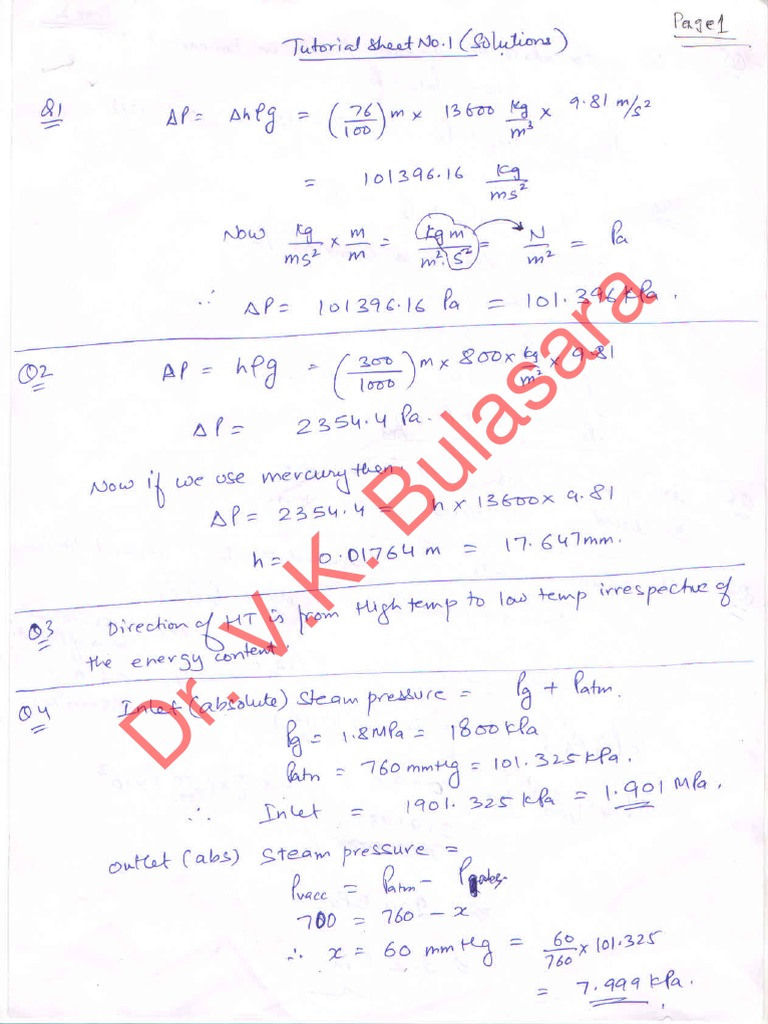 Page 1
Tutorial Sheet No.1 (Solutions)
Q1 ΔP = Δhρg = (76/100) m × 13600 kg/m³ × 9.81 m/s²
= 101396.16 kg/ms²
Now kg/ms² × m/m = kg m/m². s² = N/m² = Pa
∴ ΔP = 101396.16 Pa = 101.396 kPa.
Q2 ΔP = hρg = (300/1000) m × 800 × kg/m² × 9.81
ΔP = 2354.4 Pa.
Now if we use mercury then.
ΔP = 2354.4 = h × 13600 × 9.81
h = 0.01764 m = 17.647 mm.
Q3 Direction of HT is from High temp to low temp irrespective of
the energy content.
Q4 Inlet (absolute) steam pressure = Pg + Patm.
Pg = 1.8 MPa = 1800 kPa
Patm = 760 mmHg = 101.325 kPa.
∴ Inlet = 1901.325 kPa = 1.901 MPa.
outlet (abs) steam pressure =
Pvacc = Patm - Pabs.
700 = 760 - x
∴ x = 60 mmHg = 60/760 × 101.325
= 7.999 kPa.
Dr. V.K. Bulasara